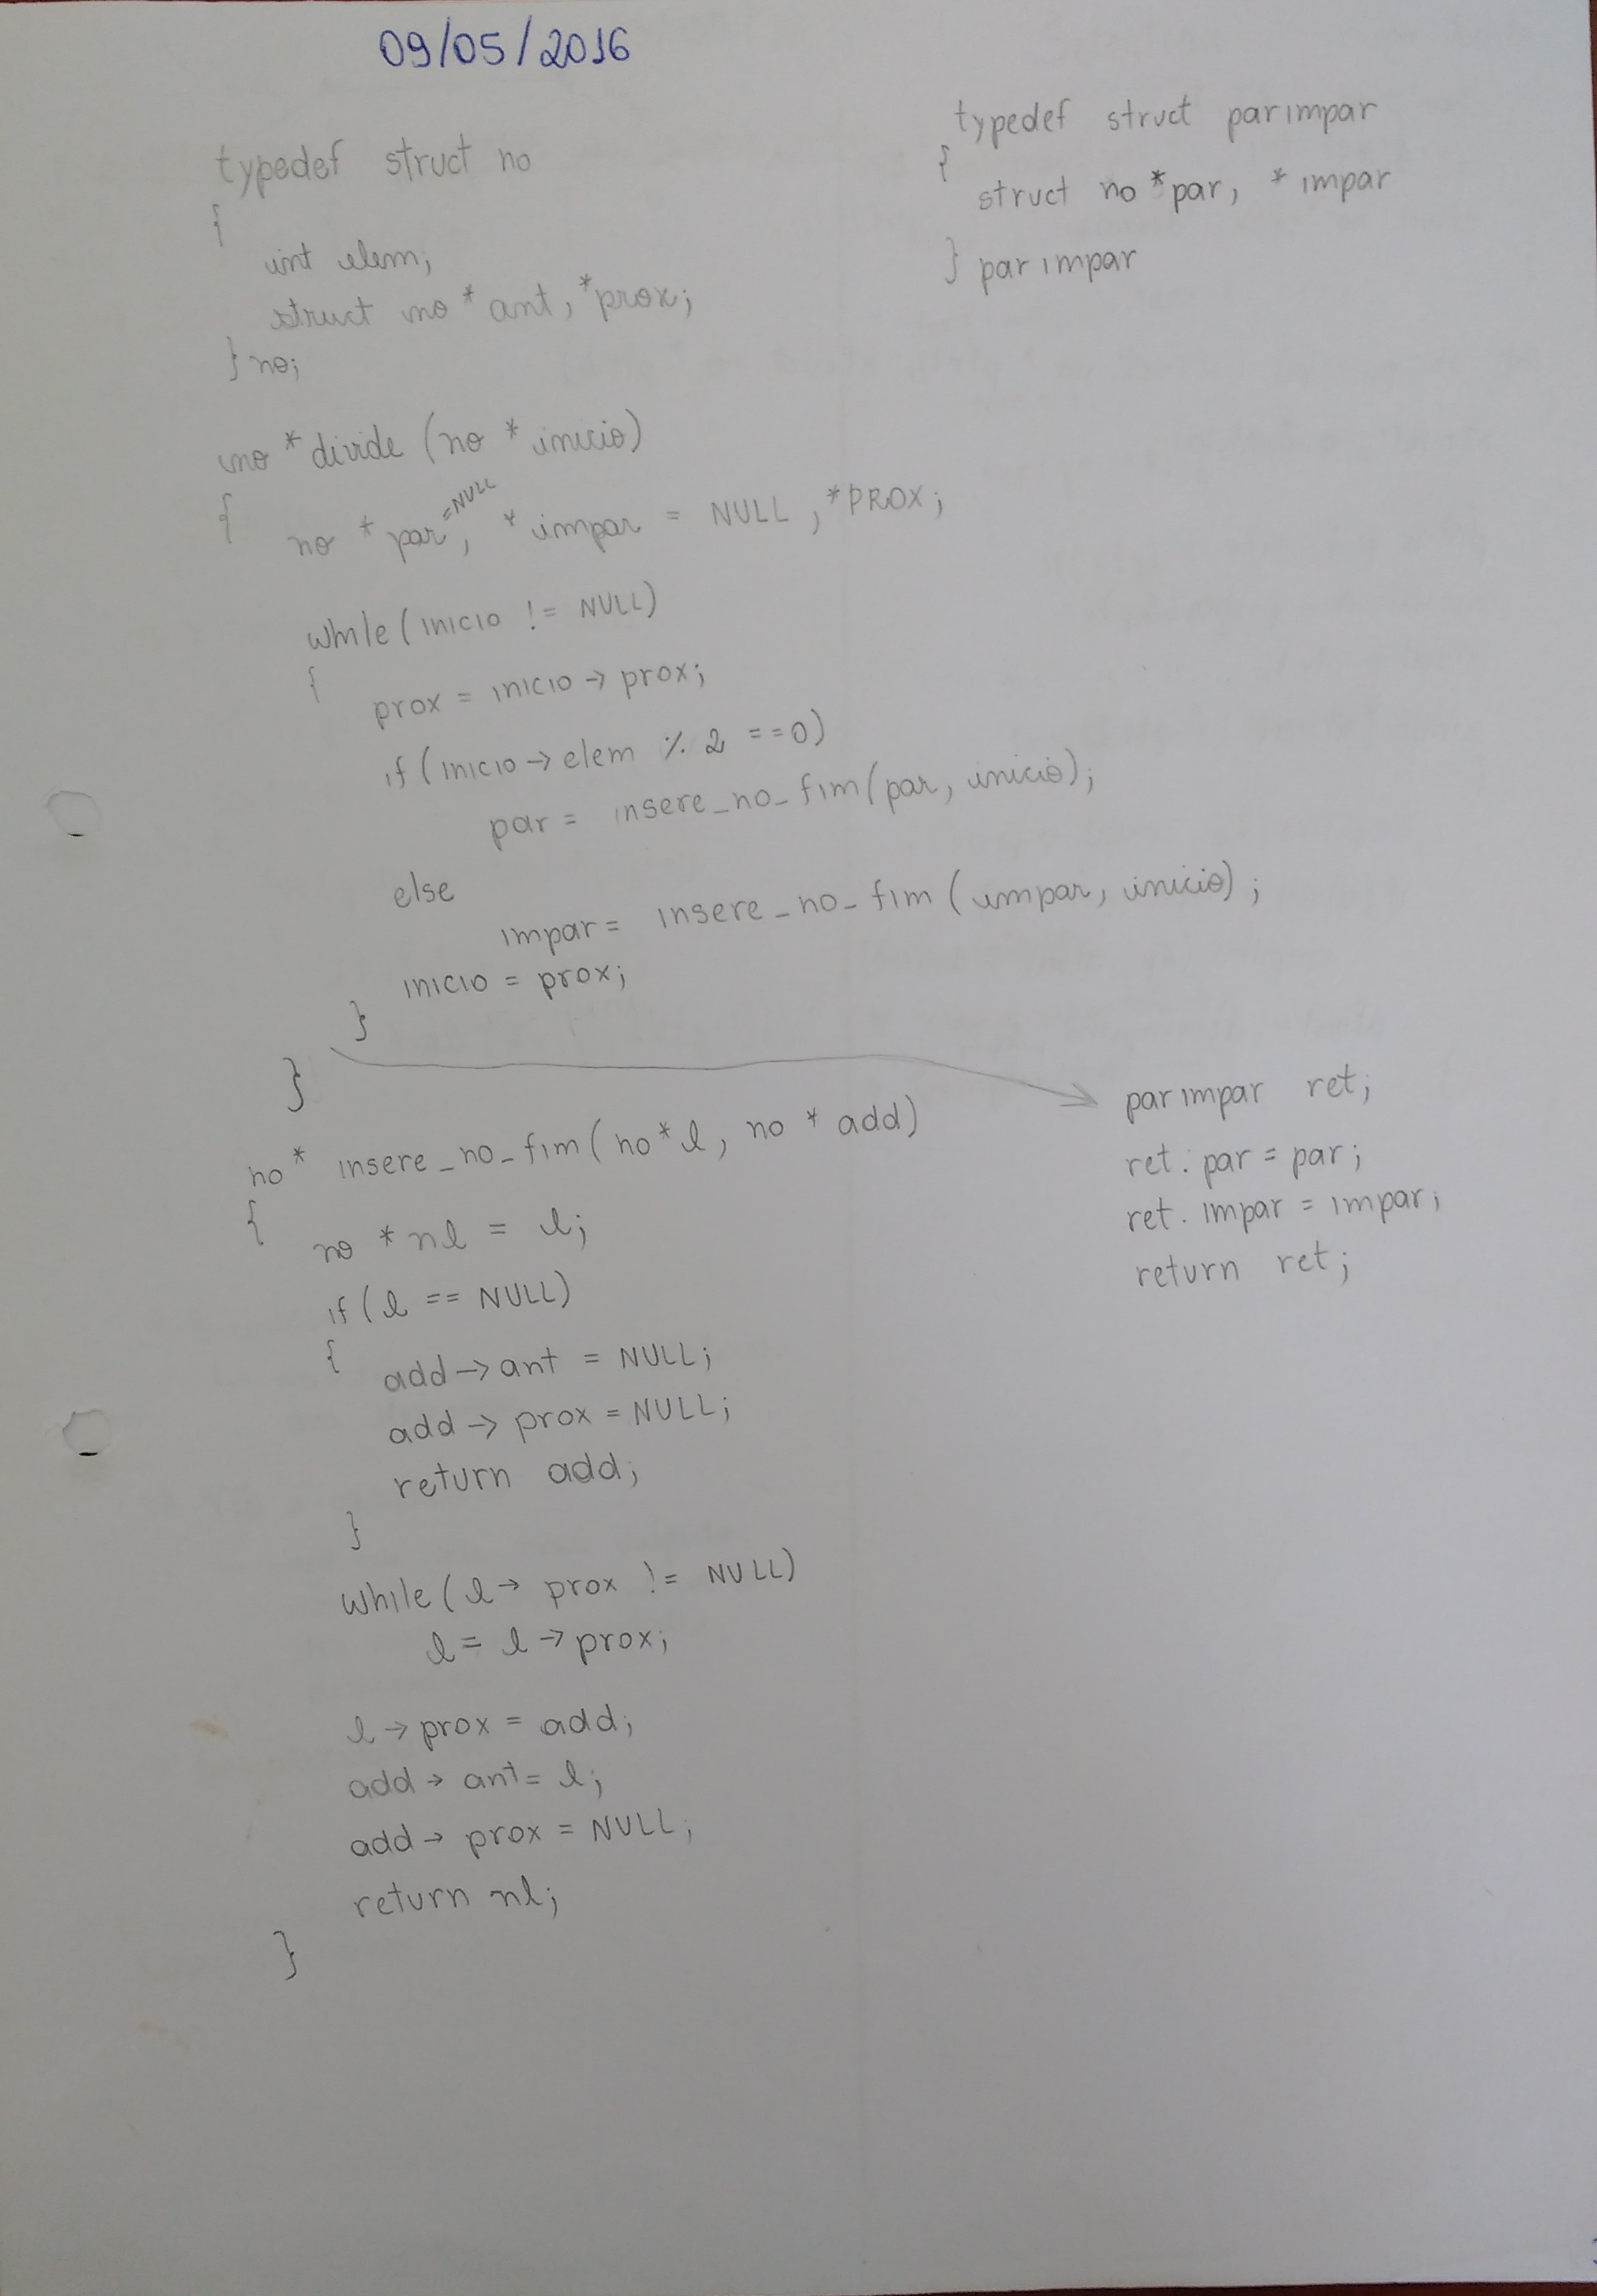 09/05/2016
typedef struct no
{
int elem;
struct no * ant, *prox;
} no;
typedef struct parimpar
{
struct no *par, * impar
} parimpar
no * divide (no * inicio)
{ no * par =NULL, * impar = NULL, *PROX;
while (inicio != NULL)
{ prox = inicio -> prox;
if (inicio -> elem % 2 ==0)
par = insere_no_fim (par, inicio);
else
impar = insere_no_fim (impar, inicio);
inicio = prox;
}
}
parimpar ret;
ret. par = par;
ret. impar = impar;
return ret;
no * insere_no_fim (no * l, no * add)
{
no * nl = l;
if (l == NULL)
{ add -> ant = NULL;
add -> prox = NULL;
return add;
}
while (l -> prox != NULL)
l = l -> prox;
l -> prox = add;
add -> ant = l;
add -> prox = NULL;
return nl;
}